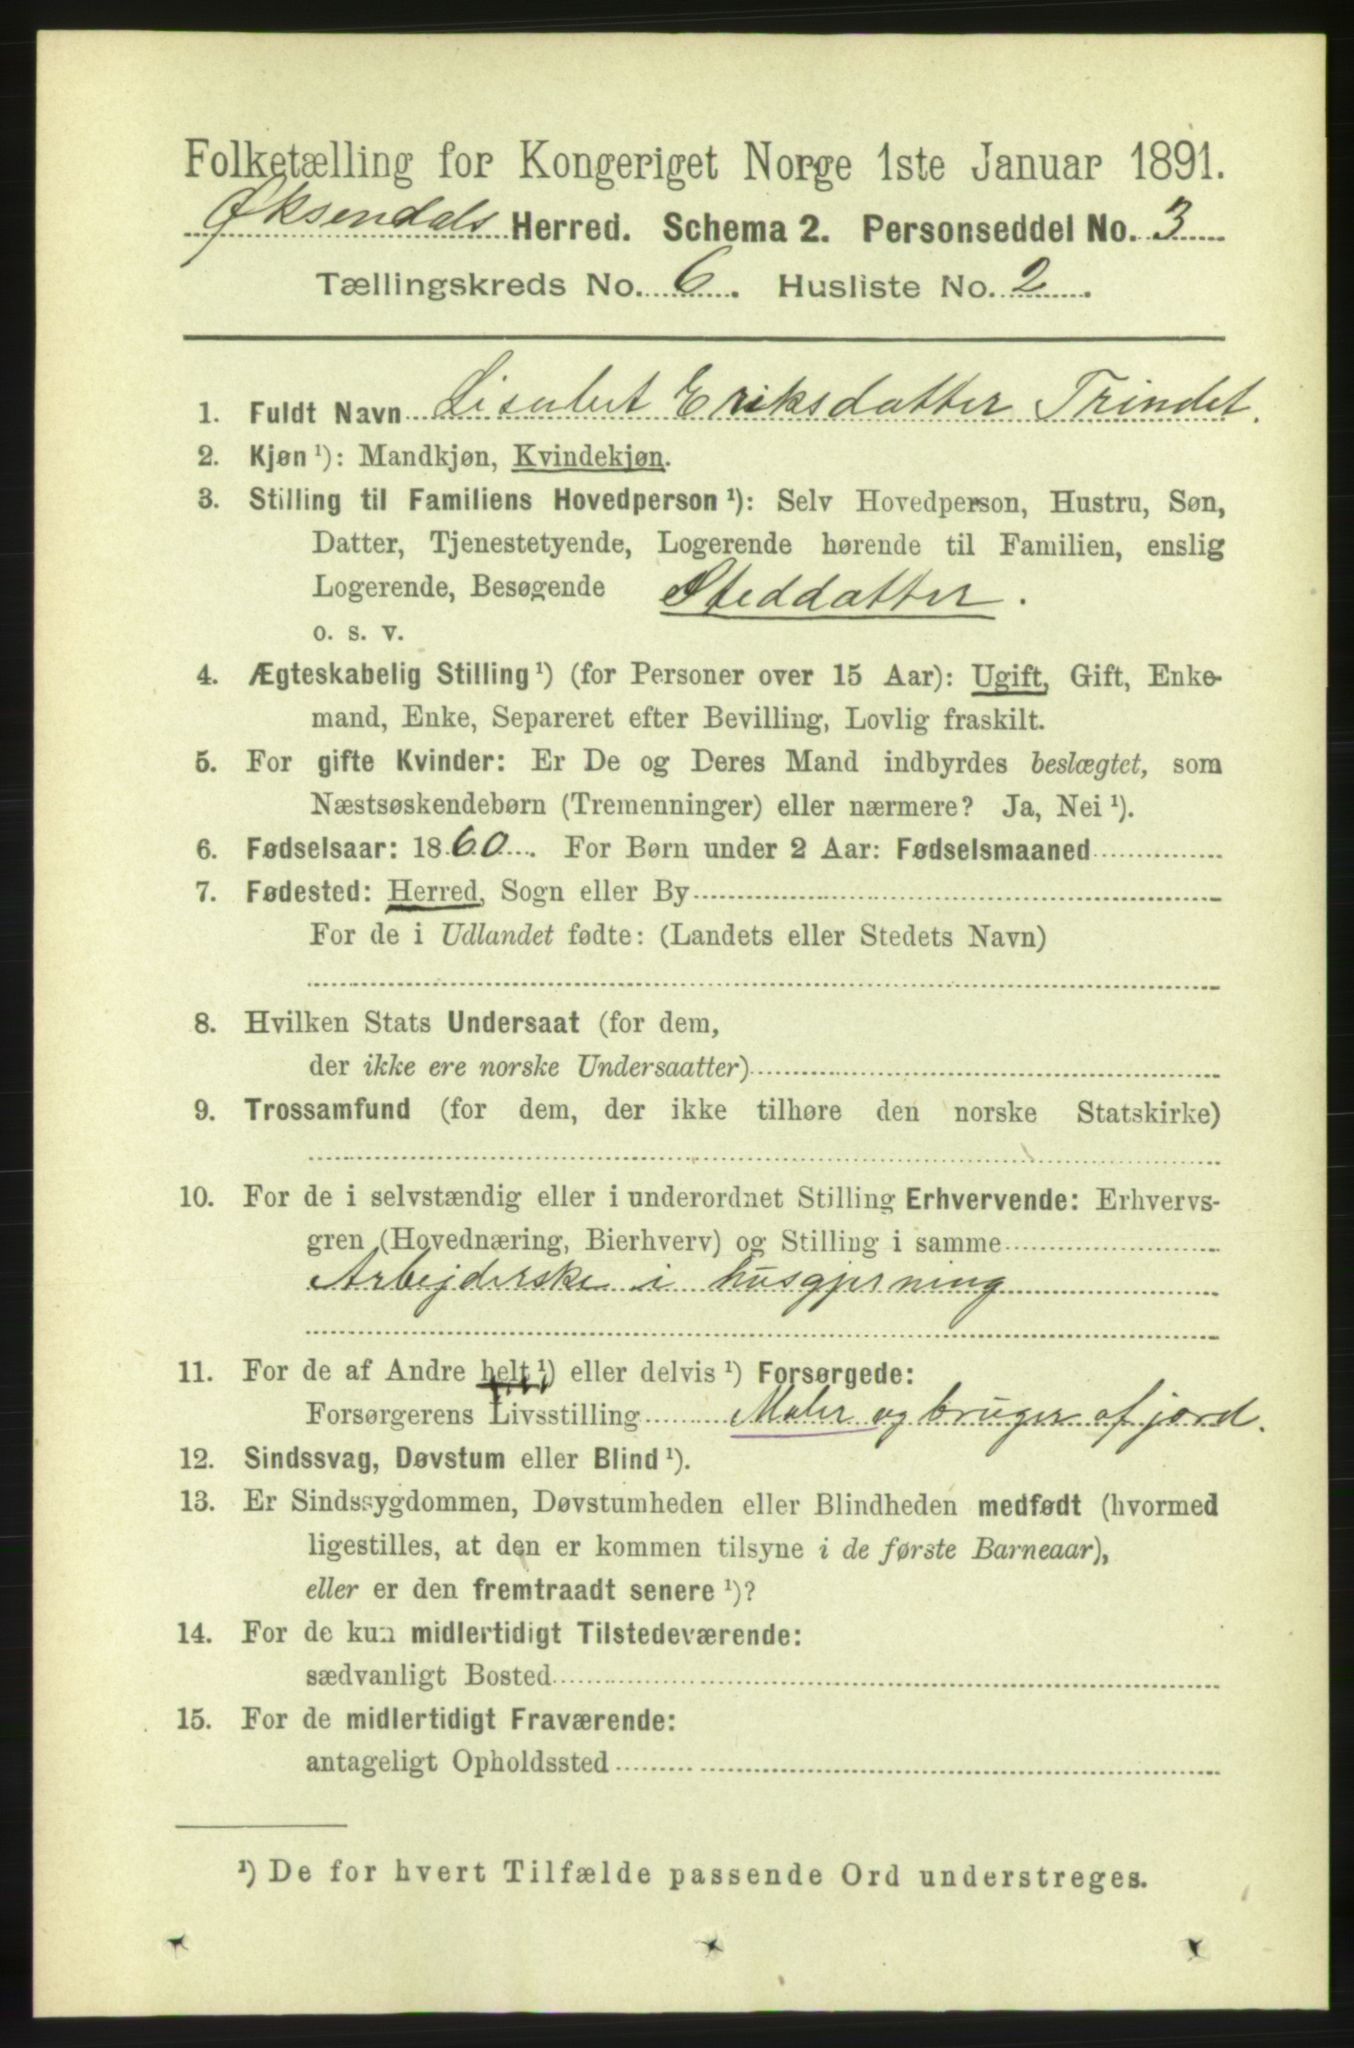 Folketælling for Kongeriget Norge 1ste Januar 1891.
Øksendals Herred. Schema 2. Personseddel No. 3
Tællingskreds No. 6. Husliste No. 2.
1. Fuldt Navn Lisabet Eriksdatter Trindet.
2. Kjøn ¹): Mandkjøn, Kvindekjøn.
3. Stilling til Familiens Hovedperson ¹): Selv Hovedperson, Hustru, Søn,
Datter, Tjenestetyende, Logerende hørende til Familien, enslig
Logerende, Besøgende Steddatter.
o. s. v.
4. Ægteskabelig Stilling ¹) (for Personer over 15 Aar): Ugift, Gift, Enke-
mand, Enke, Separeret efter Bevilling, Lovlig fraskilt.
5. For gifte Kvinder: Er De og Deres Mand indbyrdes beslægtet, som
Næstsøskendebørn (Tremenninger) eller nærmere? Ja, Nei ¹).
6. Fødselsaar: 1860. For Børn under 2 Aar: Fødselsmaaned
7. Fødested: Herred, Sogn eller By
For de i Udlandet fødte: (Landets eller Stedets Navn)
8. Hvilken Stats Undersaat (for dem,
der ikke ere norske Undersaatter)
9. Trossamfund (for dem, der ikke tilhøre den norske Statskirke)
10. For de i selvstændig eller i underordnet Stilling Erhvervende: Erhvervs-
gren (Hovednæring, Bierhverv) og Stilling i samme
Arbejderske i husgjerning
11. For de af Andre helt ¹) eller delvis ¹) Forsørgede:
Forsørgerens Livsstilling Maler og bruger af jord.
12. Sindssvag, Døvstum eller Blind ¹).
13. Er Sindssygdommen, Døvstumheden eller Blindheden medfødt (hvormed
ligestilles, at den er kommen tilsyne i de første Barneaar),
eller er den fremtraadt senere ¹)?
14. For de kun midlertidigt Tilstedeværende:
sædvanligt Bosted
15. For de midlertidigt Fraværende:
antageligt Opholdssted
¹) De for hvert Tilfælde passende Ord understreges.